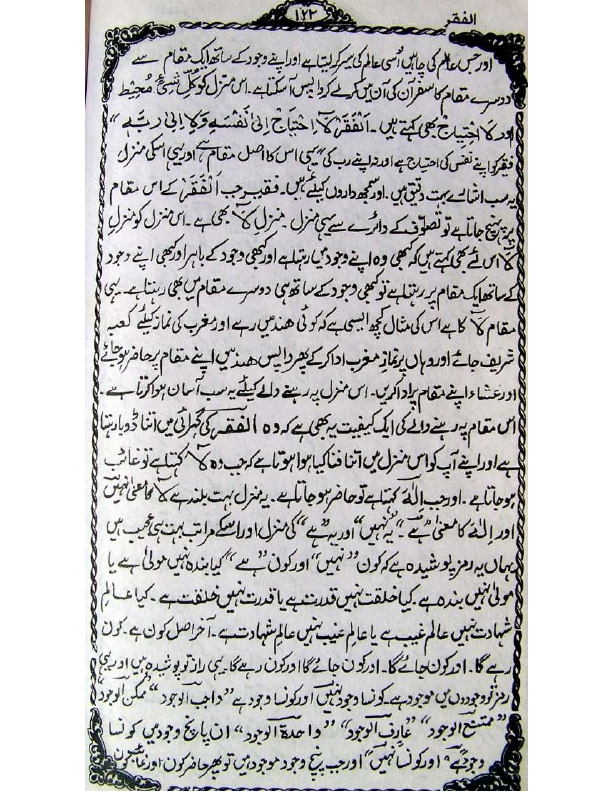 الفقر
۱۲۲
اور جس عالم کی چاہیں اُسی عالم کی سیر کر لیتا ہے اور اپنے وجود کے ساتھ ایک مقام سے
دوسرے مقام کا سفر آن کی آن میں کر کے واپس آسکتا ہے۔ اس منزل کو کُلِّ شَیْءٍ مُحِیْط
اور لَا اِحْتِیَاجْ بھی کہتے ہیں۔ اَلْفَقْرُ لَا اِحْتِیَاجَ اِلیٰ نَفْسِہٖ وَلَا اِلیٰ رَبِّہٖ "
فقر کو اپنے نفس کی احتیاج ہے اور نہ اپنے رب کی" یہی اس کا اصل مقام ہے اور یہی اسکی منزل
یہ سب اشارے بہت دقیق ہیں۔ اور سمجھ داروں کیلئے ہیں۔ فقیر جب اَلْفَقْرُ کے اس مقام
پر پہنچ جاتا ہے تو تصوّف کے دائرے سے یہی منزل۔ منزل لَا بھی ہے۔ اس منزل کو منزلِ
لَا اس لئے بھی کہتے ہیں کہ کبھی وہ اپنے وجود میں رہتا ہے اور کبھی وجود کے باہر اور کبھی اپنے وجود
کے ساتھ ایک مقام پر رہتا ہے تو کبھی وجود کے ساتھ ہی دوسرے مقام میں بھی رہتا ہے۔ یہی
مقام لَا کا ہے اس کی مثال کچھ ایسی ہے کہ کوئی ھند میں رہے اور مغرب کی نماز کیلئے کعبہ
شریف جائے اور وہاں پر نماز مغرب ادا کر کے پھر واپس ھند میں اپنے مقام پر حاضر ہو جائے
اور عشاء اپنے مقام پر ادا کریں۔ اس منزل پہ رہنے والے کیلئے یہ سب آسان ہوا کرتا ہے۔
اس مقام پہ رہنے والے کی ایک کیفیت یہ بھی ہے کہ وہ الفقر کی گہرائی میں اتنا ڈوبا رہتا
ہے اور اپنے آپ کو اس منزل میں اتنا فنا کیا ہوا ہوتا ہے کہ جب وہ لَا کہتا ہے تو غائب
ہو جاتا ہے۔ اور جب اِلٰہَ کہتا ہے تو حاضر ہو جاتا ہے۔ یہ منزل بہت بلند ہے لَا کا معنیٰ نہیں
اور اِلٰہَ کا معنیٰ "ہے"۔ یہ "نہیں" اور یہ "ہے" کی منزل اور اسکے مراتب بہت ہی عجیب ہیں
یہاں یہ رمز پوشیدہ ہے کہ کون "نہیں" اور کون "ہے" کیا بندہ نہیں مولیٰ ہے یا
مولیٰ نہیں بندہ ہے۔ کیا خلقت نہیں قدرت ہے یا قدرت نہیں خلقت ہے۔ کیا عالمِ
شہادت نہیں عالم غیب ہے یا عالم غیب نہیں عالم شہادت ہے۔ آخر اصل کون ہے۔ کون
رہے گا۔ اور کون جائے گا۔ اور کون جائے گا اور کون رہے گا۔ یہی راز تو پوشیدہ ہیں اور یہی
رمز تو وجودوں میں موجود ہے۔ کونسا وجود نہیں اور کونسا وجود ہے "واجب الوجود" "ممکن الوجود"
"ممتنع الوجود" "عارف الوجود" "واحدۃ الوجود" ان پانچ وجود میں کونسا
وجود "ہے" اور کونسا "نہیں" اور جب پنچ وجود موجود میں تو پھر حاضر کون اور غائب کون